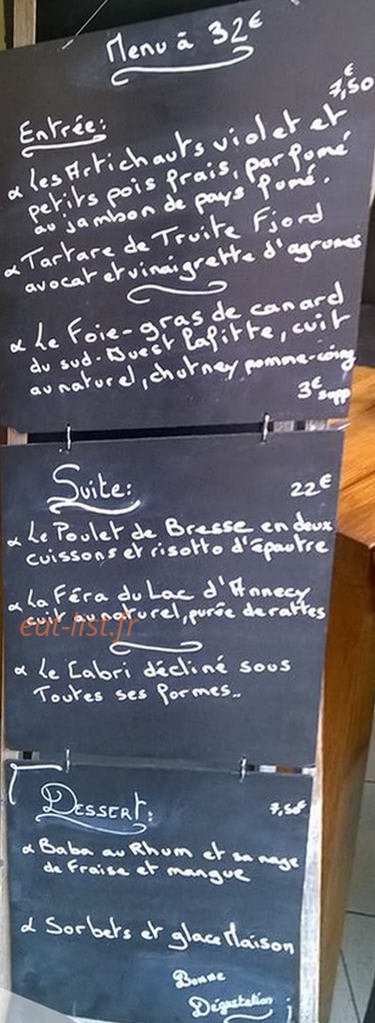 Menu à 32€
7,50€
Entrée:
Les Artichauts violet et
petits pois frais, parfumé
au jambon de pays fumé.
Tartare de Truite Fjord
avocat et vinaigrette d'agrumes
Le Foie-gras de canard
du sud-Ouest Lafitte, cuit
au naturel, chutney pomme-coing
3€ supp
Suite: 22€
Le Poulet de Bresse en deux
cuissons et risotto d'épautre
La Féra du Lac d'Annecy
cuit au naturel, purée de rattes
eat-list.fr
Le Cabri décliné sous
Toutes ses formes..
Dessert: 7,50€
Baba au Rhum et sa nage
de Fraise et mangue
Sorbets et glace Maison
Bonne
Dégustation